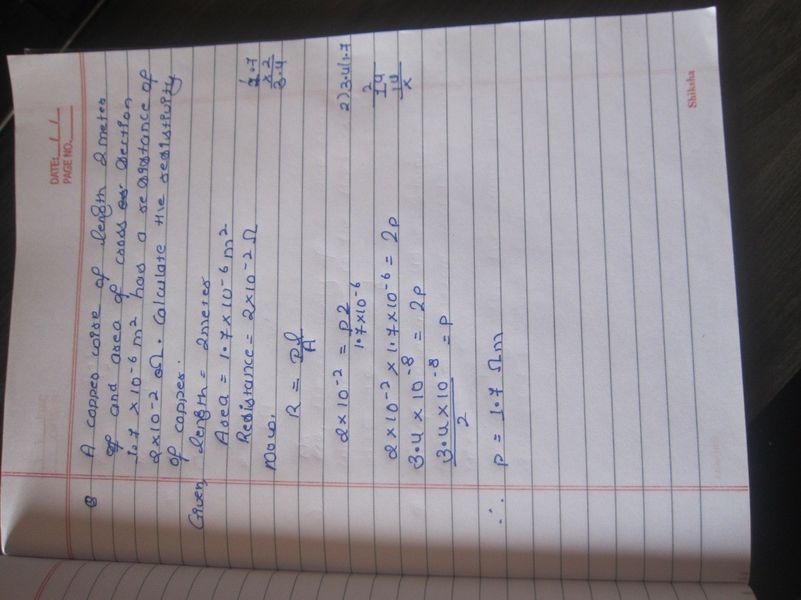 DATE: / /
PAGE NO.
Q A copper wire of length 2 meter
of and area of cross or section
1.7 x 10-6 m2 has a resistance of
2x10-2 Ω. Calculate the resistivity
of copper.
Given, length = 2meter
Area = 1.7 x 10-6 m2
Resistance = 2x10-2 Ω
Now,
R = ρl/A
2x10-2 = ρ2/1.7x10-6
2x10-2 x 1.7x10-6 = 2ρ
3.4 x 10-8 = 2ρ
3.4 x 10-8/2 = ρ
∴ ρ = 1.7 Ωm
1.7
x 2
3.4
2)3.4(1.7
2
14
14
x
Shiksha